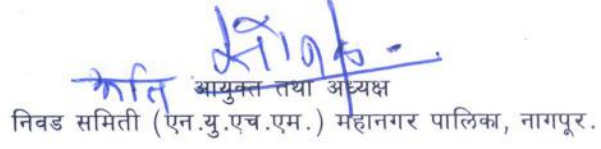 आयुक्त तथा अध्यक्ष
निवड समिती (एन.यु.एच.एम.) महानगर पालिका, नागपूर.